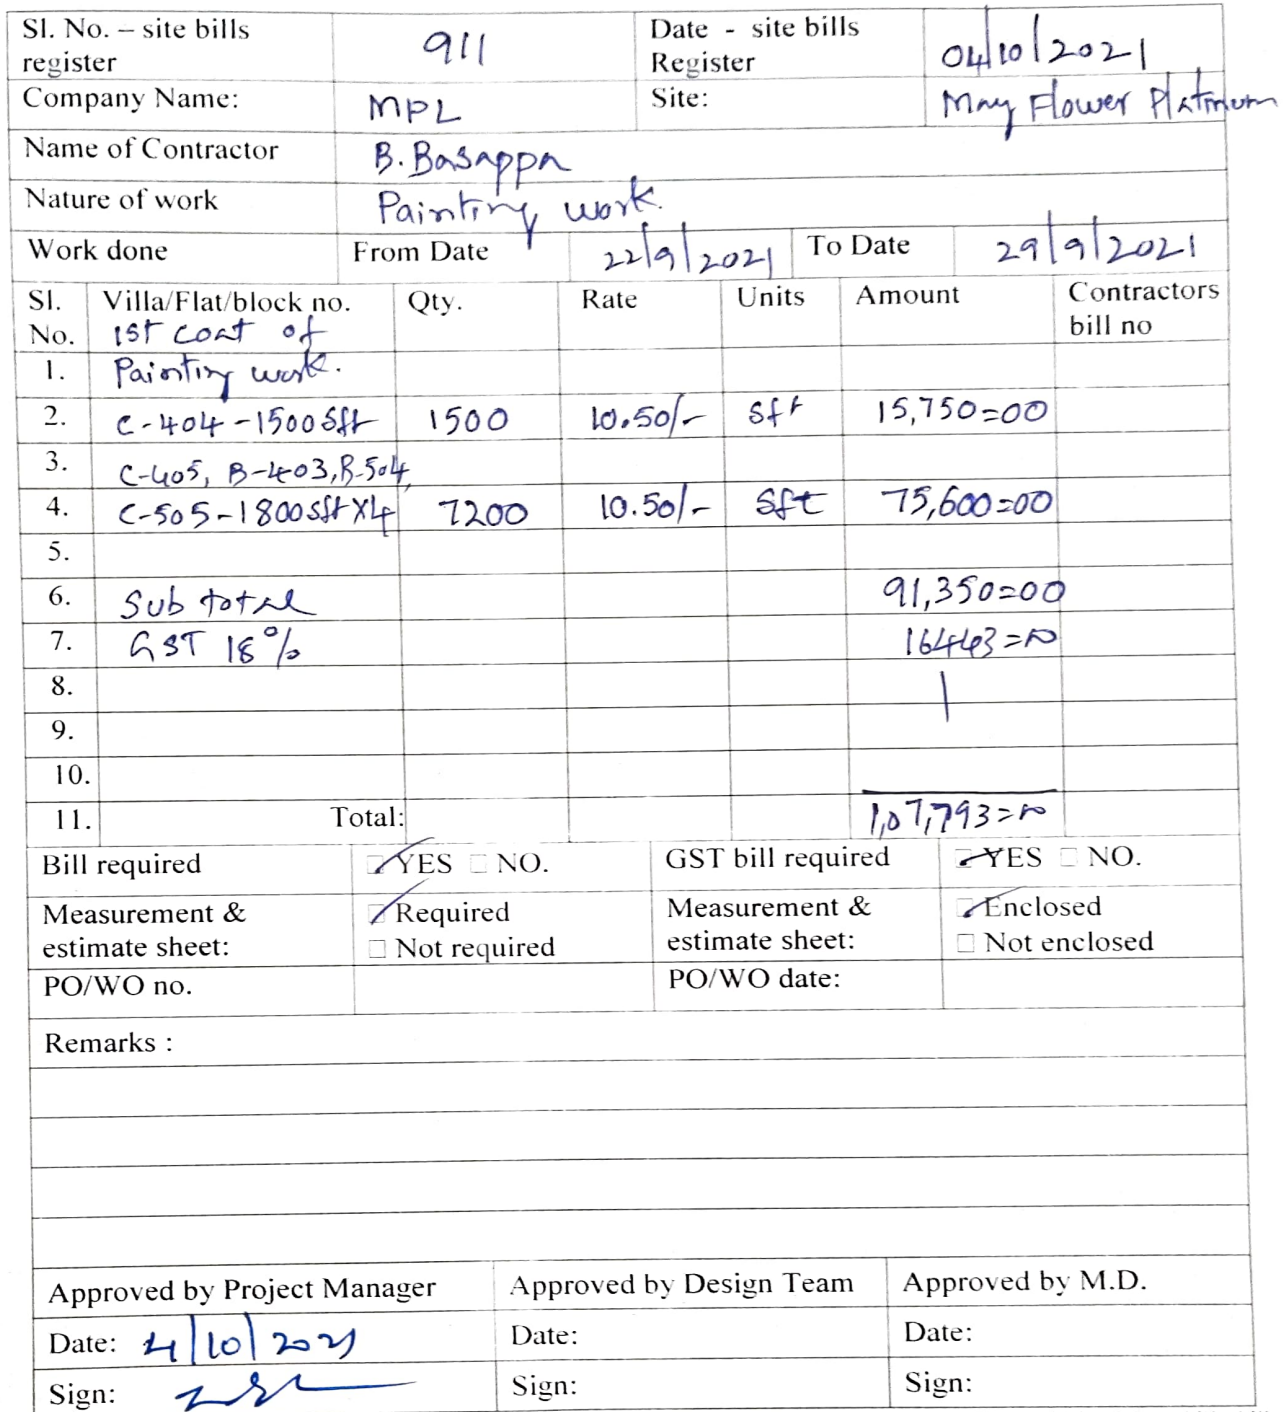 Sl. No. – site bills register 911 Date - site bills Register 04/10/2021
Company Name: MPL Site: May Flower Platinum
Name of Contractor B. Basappa
Nature of work Painting work.
Work done From Date 22/9/2021 To Date 29/9/2021
Sl. No. Villa/Flat/block no. Qty. Rate Units Amount Contractors bill no
1st coat of
1. Painting work.
2. C-404-1500sft 1500 10.50/- sft 15,750=00
3. C-405, B-403, B-504,
4. C-505-1800sft X4 7200 10.50/- sft 75,600=00
5.
6. Sub total 91,350=00
7. GST 18% 16443=00
8.
9.
10.
11. Total: 1,07,793=00
Bill required YES NO. GST bill required YES NO.
Measurement & estimate sheet: Required Not required Measurement & estimate sheet: Enclosed Not enclosed
PO/WO no. PO/WO date:
Remarks :
Approved by Project Manager Approved by Design Team Approved by M.D.
Date: 4/10/2021 Date: Date:
Sign: Sign: Sign: